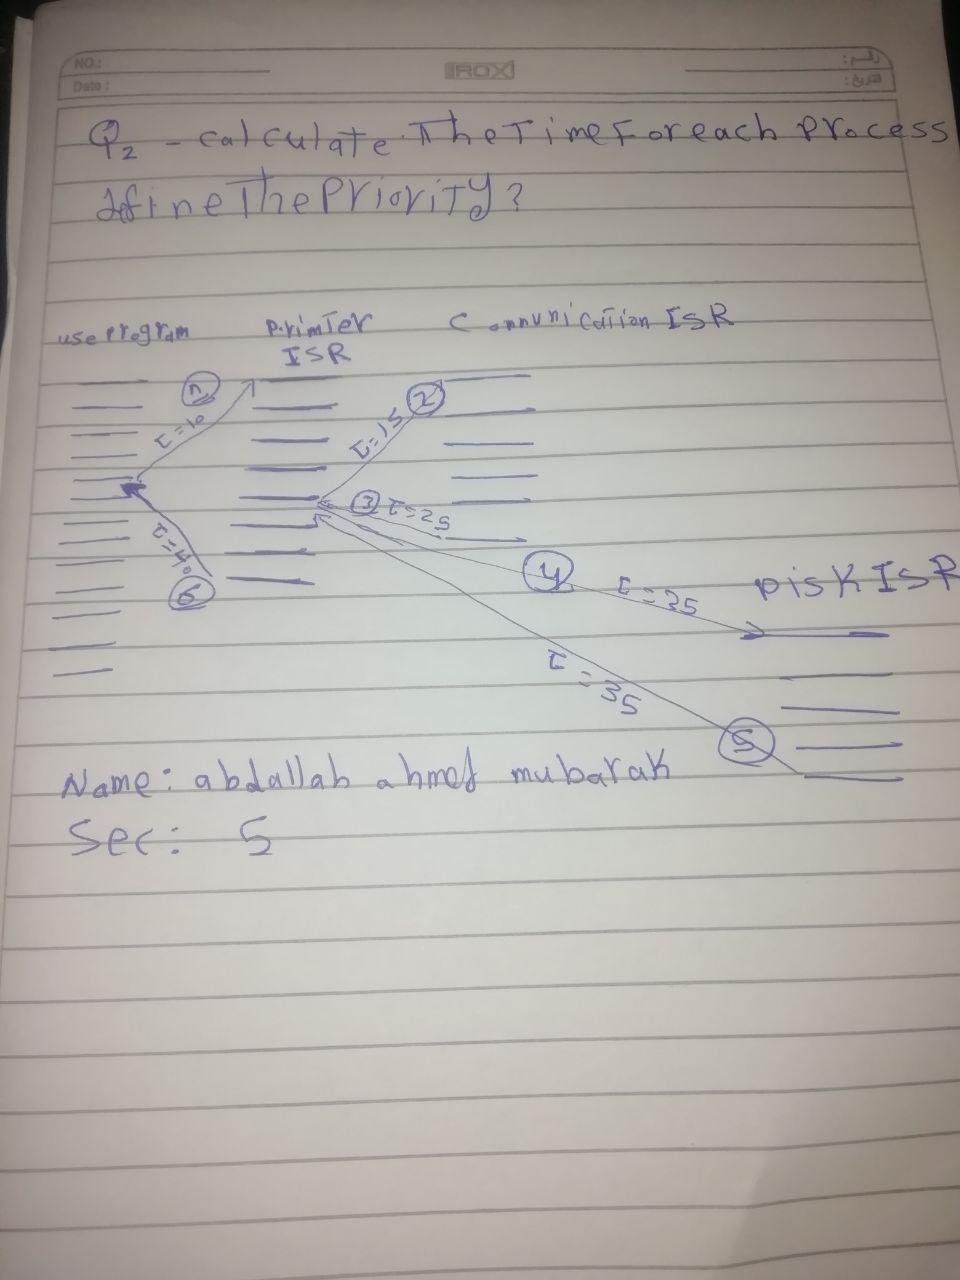 NO.:
Date :
ROX
رقم :
تاريخ :
Q2 - calculate The Time For each process
define The Priority?
use program
Primter
ISR
Communication ISR
τ=10
2
τ=15
3 τ=25
4
τ=25
Disk ISR
τ=40
6
τ=35
5
Name: abdallah ahmed mubarak
Sec: 5